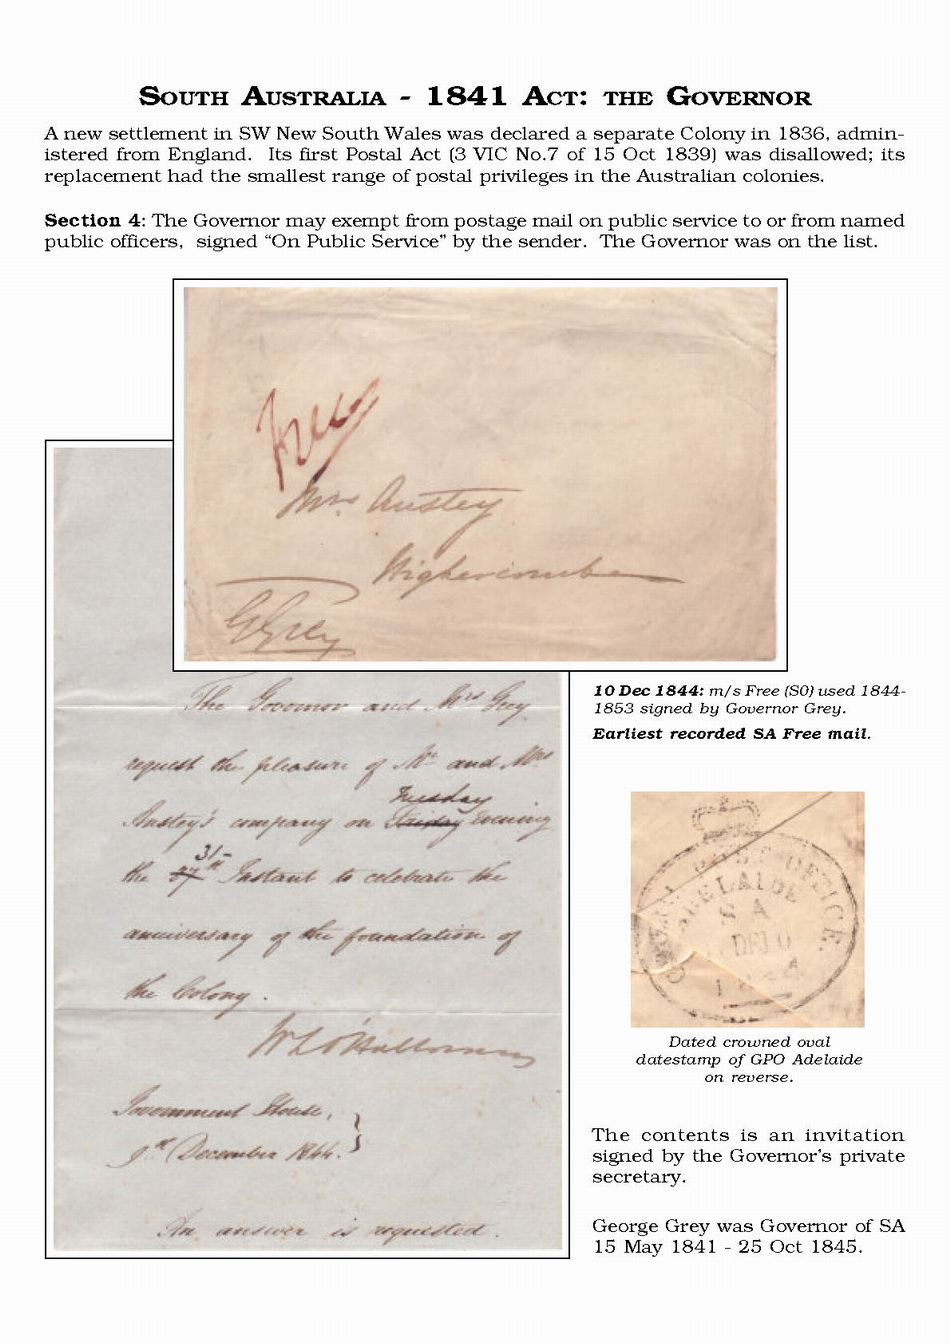 SOUTH AUSTRALIA - 1841 ACT: THE GOVERNOR
A new settlement in SW New South Wales was declared a separate Colony in 1836, admin-
istered from England. Its first Postal Act (3 VIC No.7 of 15 Oct 1839) was disallowed; its
replacement had the smallest range of postal privileges in the Australian colonies.
Section 4: The Governor may exempt from postage mail on public service to or from named
public officers, signed “On Public Service” by the sender. The Governor was on the list.
Free
Mrs Anstey
Highercombe
G Grey
The Governor and Mrs Grey
request the pleasure of Mr and Mrs
Tuesday
Anstey's company on Friday Evening
31st
the 27 Instant to celebrate the
anniversary of the foundation of
the Colony.
Government House,
9th December 1844.
An answer is requested.
10 Dec 1844: m/s Free (S0) used 1844-
1853 signed by Governor Grey.
Earliest recorded SA Free mail.
GENERAL POST OFFICE
ADELAIDE
S A
DE 10
1844
Dated crowned oval
datestamp of GPO Adelaide
on reverse.
The contents is an invitation
signed by the Governor's private
secretary.
George Grey was Governor of SA
15 May 1841 - 25 Oct 1845.